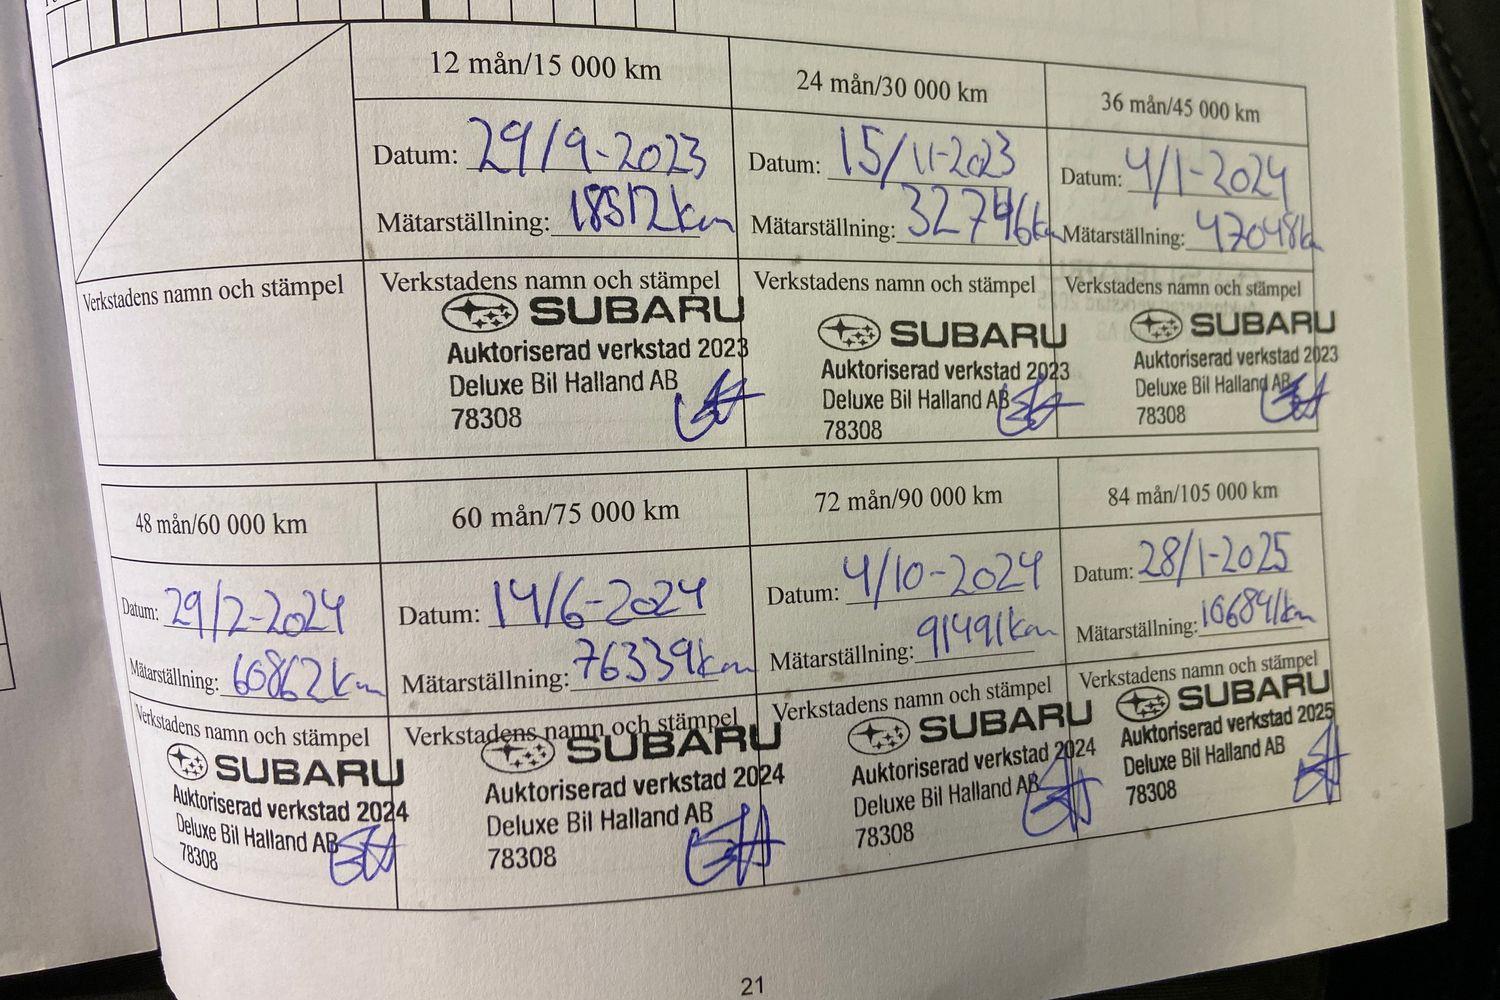 12 mån/15 000 km
24 mån/30 000 km
36 mån/45 000 km
Datum: 29/9-2023
Datum: 15/11-2023
Datum: 4/1-2024
Mätarställning: 18512km
Mätarställning: 32746km
Mätarställning: 47048k
Verkstadens namn och stämpel
Verkstadens namn och stämpel
Verkstadens namn och stämpel
Verkstadens namn och stämpel
SUBARU
Auktoriserad verkstad 2023
Deluxe Bil Halland AB
78308
SUBARU
Auktoriserad verkstad 2023
Deluxe Bil Halland AB
78308
SUBARU
Auktoriserad verkstad 2023
Deluxe Bil Halland AB
78308
48 mån/60 000 km
60 mån/75 000 km
72 mån/90 000 km
84 mån/105 000 km
Datum: 29/2-2024
Datum: 14/6-2024
Datum: 4/10-2024
Datum: 28/1-2025
Mätarställning: 60862km
Mätarställning: 76339km
Mätarställning: 91491km
Mätarställning: 106841km
Verkstadens namn och stämpel
Verkstadens namn och stämpel
Verkstadens namn och stämpel
Verkstadens namn och stämpel
SUBARU
Auktoriserad verkstad 2024
Deluxe Bil Halland AB
78308
SUBARU
Auktoriserad verkstad 2024
Deluxe Bil Halland AB
78308
SUBARU
Auktoriserad verkstad 2024
Deluxe Bil Halland AB
78308
SUBARU
Auktoriserad verkstad 2025
Deluxe Bil Halland AB
78308
21